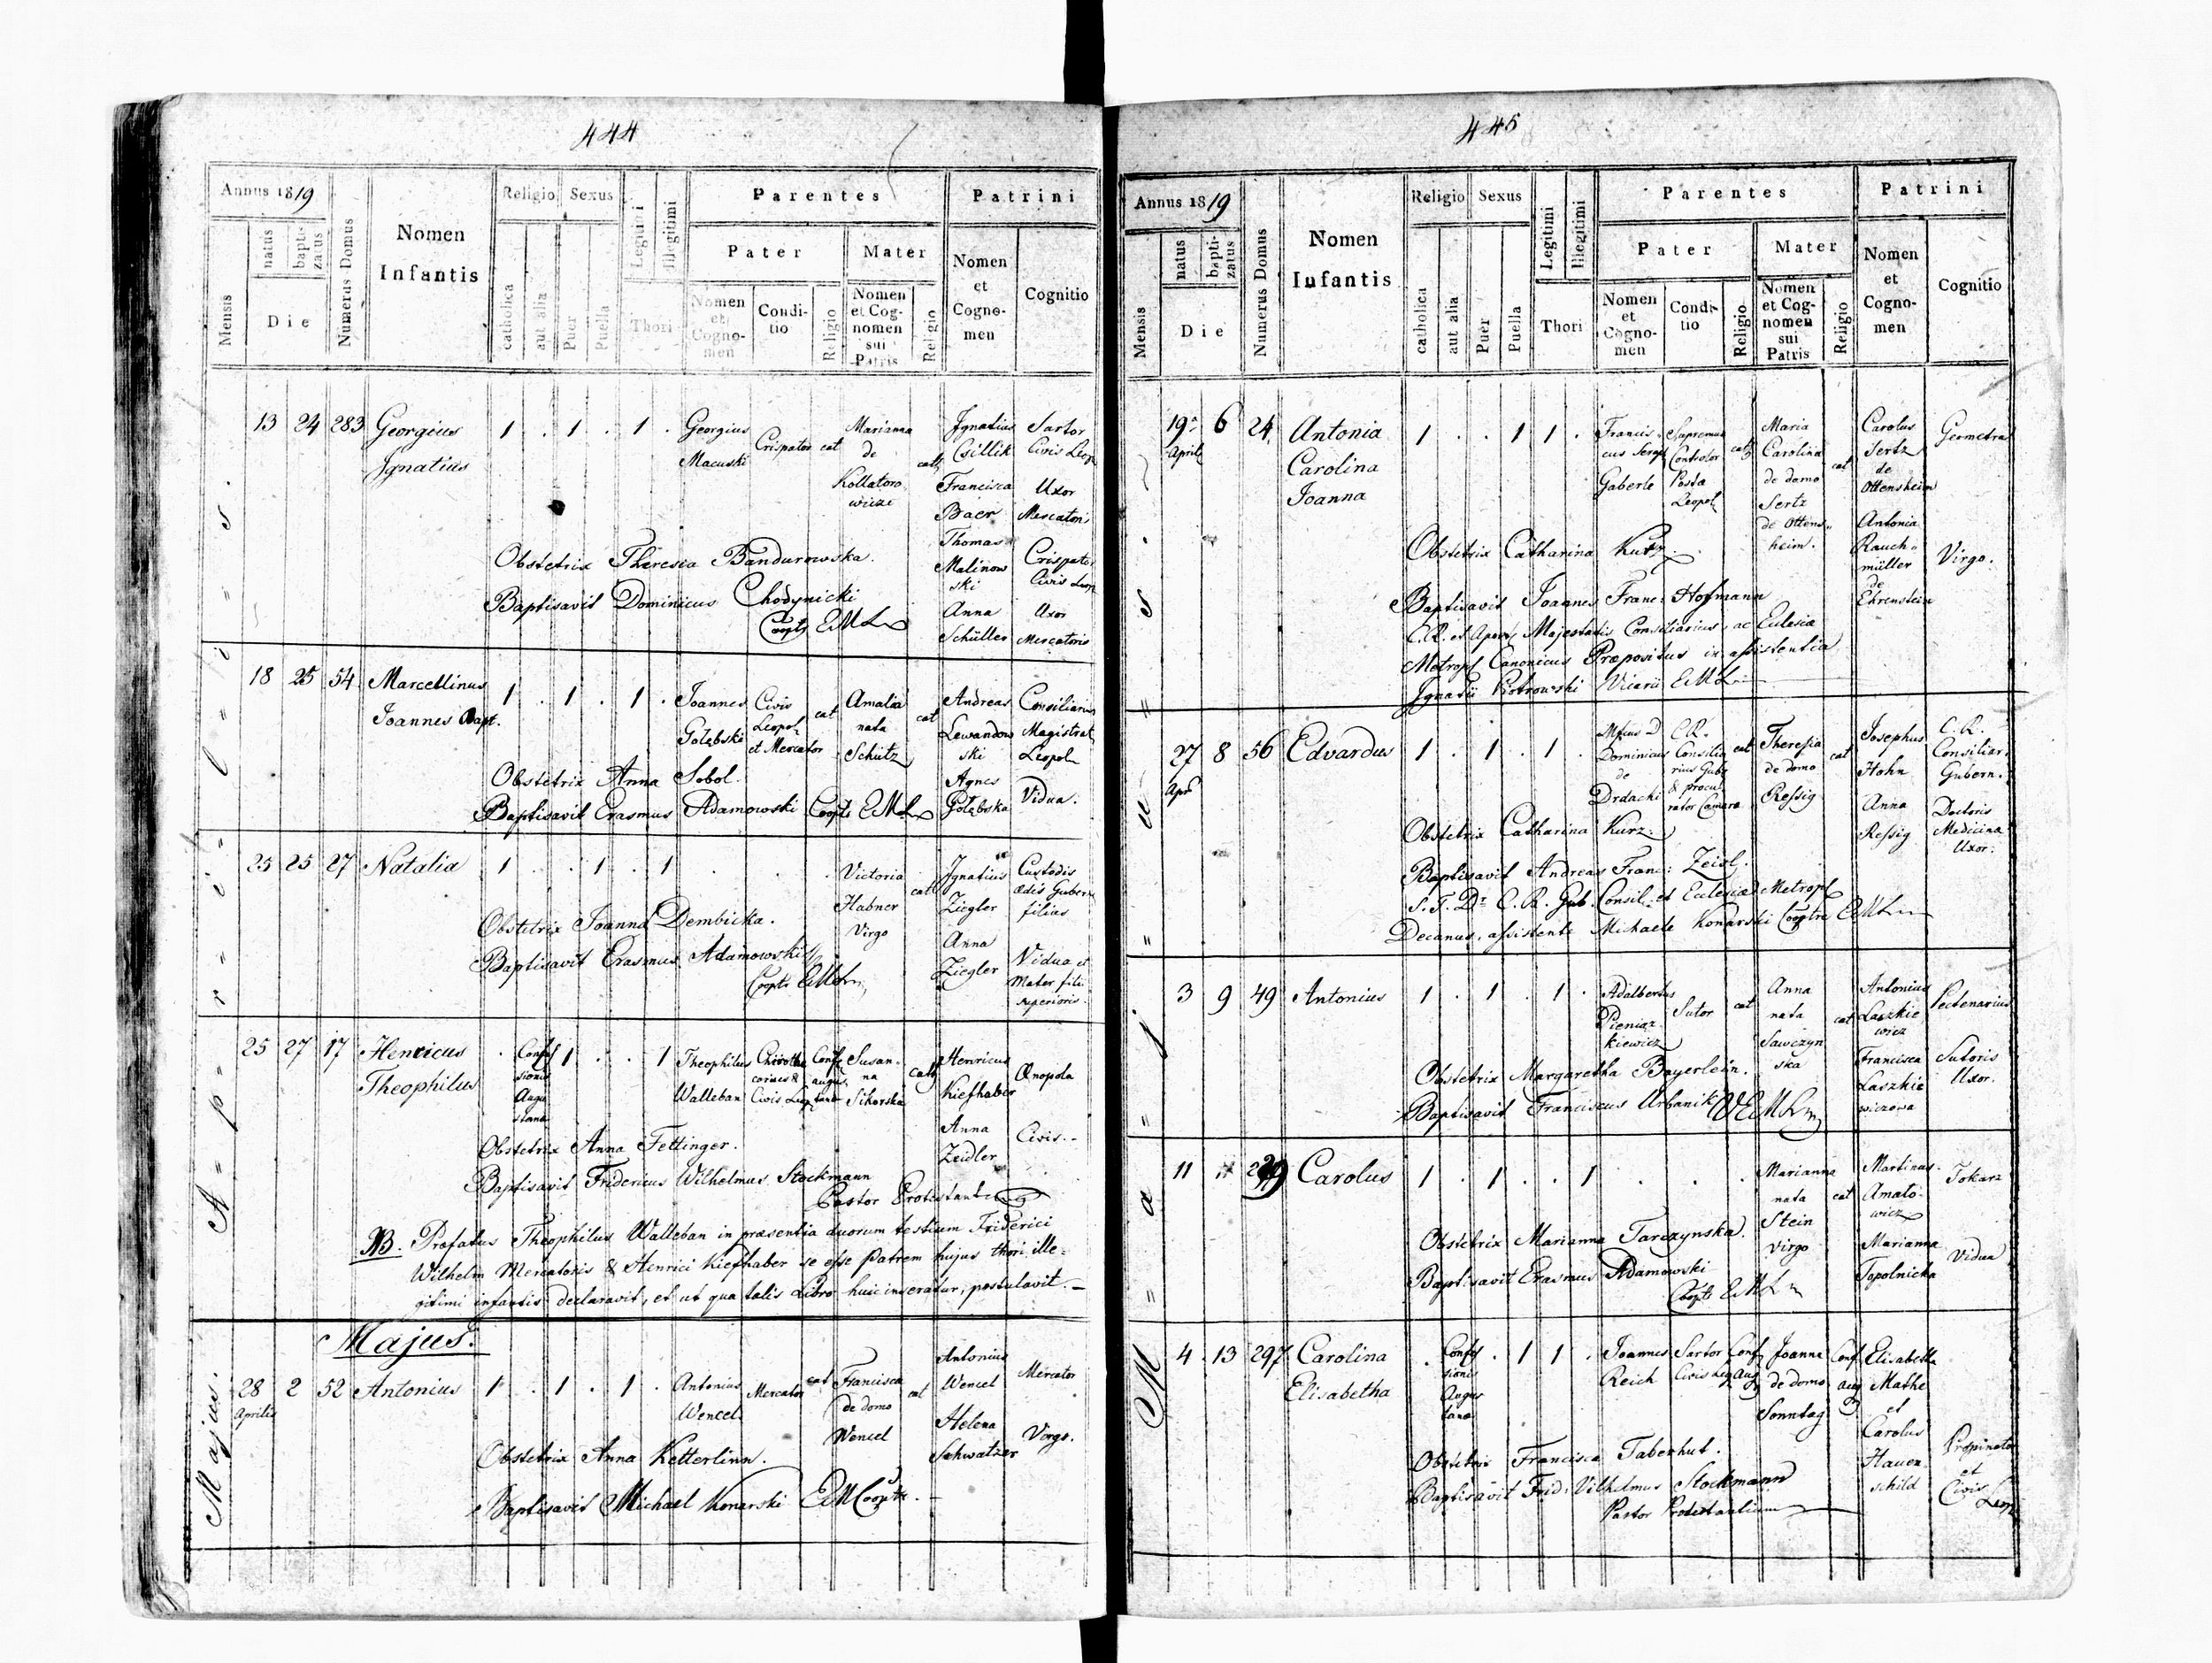 444
Annus 1819
Mensis
natus
baptizatus
Die
Numerus Domus
Nomen Infantis
Religio
catholica
aut alia
Sexus
Puer
Puella
Legitimi
Illegitimi
Thori
Parentes
Pater
Nomen et Cognomen
Conditio
Religio
Mater
Nomen et Cognomen sui Patris
Religio
Patrini
Nomen et Cognomen
Cognitio
Aprilis.
13 24 283 Georgius Ignatius 1 . 1 . 1 .
Georgius Macuski
Crispator cat
Marianna de Kollatorowicze cath
Ignatius Csillik
Sartor Civis Leop
Francisca Baer
Uxor Mercatoris
Thomas Malinowski
Crispator Civis Leop
Anna Schüller
Uxor Mercatoris
Obstetrix Theresia Bandurowska.
Baptisavit Dominicus Chodynicki
Coopts EML
18 25 54 Marcellinus Joannes Bapt. 1 . 1 . 1 .
Joannes Gołębski
Civis Leopol et Mercator cat
Amalia nata Schütz cat
Andreas Lewandowski
Consiliarius Magistrat Leopol
Agnes Gołębska
Vidua.
Obstetrix Anna Sobol.
Baptisavit Erasmus Adamowski Coopts EML
25 25 27 Natalia 1 . . 1 . 1
Victoria Habner Virgo cat
Ignatius Ziegler
Custodis Aedis Gubern filius
Anna Ziegler
Vidua et Mater filii superioris.
Obstetrix Joanna Dembicka.
Baptisavit Erasmus Adamowski
Coopts EML
25 27 17 Henricus Theophilus . Confessionis Augustanae 1 . . 1
Theophilus Walleban
Civis
Susanna Sikorska cath
Henricus Kiefhaber
Oenopola
Anna Zeidler
Civis.
Obstetrix Anna Fettinger.
Baptisavit Fridericus Wilhelmus Stockmann
Pastor Protestant
NB. Prefatus Theophilus Walleban in praesentia duorum testium Friderici
Wilhelm Mercatoris & Henrici Kiefhaber se esse patrem hujus thori ille=
gitimi infantis declaravit, et ut qua talis Libro huic inseratur, postulavit.
Majus.
Majus.
28 Aprilis 2 52 Antonius 1 . 1 . 1 .
Antonius Wencel
Mercator cat
Francisca de domo Wencel cat
Antonius Wencel
Mercator
Helena Schwatzer
Virgo.
Obstetrix Anna Ketterlinn.
Baptisavit Michael Konarski EM Cooptr.
445
Annus 1819
Mensis
natus
baptizatus
Die
Numerus Domus
Nomen Infantis
Religio
catholica
aut alia
Sexus
Puer
Puella
Legitimi
Illegitimi
Thori
Parentes
Pater
Nomen et Cognomen
Conditio
Religio
Mater
Nomen et Cognomen sui Patris
Religio
Patrini
Nomen et Cognomen
Cognitio
Majus
19 April 6 24 Antonia Carolina Joanna 1 . . 1 1 .
Franciscus Seraph Gaberle
Supremus Controlor Posta Leopol cat
Maria Carolina de domo Sertz de Ottensheim. cat
Carolus Sertz de Ottensheim
Geometra
Antonia Rauchmüller de Ehrenstein
Virgo.
Obstetrix Catharina Kurz.
Baptisavit Joannes Franc: Hofmann
C.R. et Apost. Majestatis Consiliarius ac Eclesiæ
Metropl Canonicus Præpositus in assistentia
Ignatii Piotrowski Vicarii EML
27 Apr 8 56 Edvardus 1 . 1 . 1 .
Dominicus de Drdacki
C.R. Consiliarius Gub & procurator Camerae cat
Theresia de domo Ressig cat
Josephus Hohn
C.R. Consiliar. Gubern.
Anna Ressig
Doctoris Medicinæ Uxor.
Obstetrix Catharina Kurz.
Baptisavit Andreas Franc: Zeisl.
S.T.Dr C.R. Gub. Consil. et Eclesiæ Metropl
Decanus, assistente Michaele Konarski Cooptre EML
3 9 49 Antonius 1 . 1 . 1 .
Adalbertus Pieniazkiewicz
Sutor cat
Anna nata Sawczynska cat
Antonius Laszkiewicz
Pectenarius
Francisca Laszkiewiczowa
Sutoris Uxor.
Obstetrix Margaretha Bayerlein.
Baptisavit Franciscus Urbanik VEML
11 Carolus 1 . 1 . . 1
Marianna nata Stein Virgo cat
Martinus Amatowicz
Tokarz
Marianna Topolnicka
Vidua
Obstetrix Marianna Tarczynska.
Baptisavit Erasmus Adamowski
Coopts EML
4 13 297 Carolina Elisabetha . Confessionis Augustanae . 1 1 .
Joannes Reich
Sartor Civis Leop Conf Aug
Joanna de domo Sonntag Conf aug
Elisabetha Mathe
et
Carolus Hauenschild
Propinator et Civis Leop
Obstetrix Francisca Taberhut.
Baptisavit Frid: Vilhelmus Stockmann
Pastor Protestantium